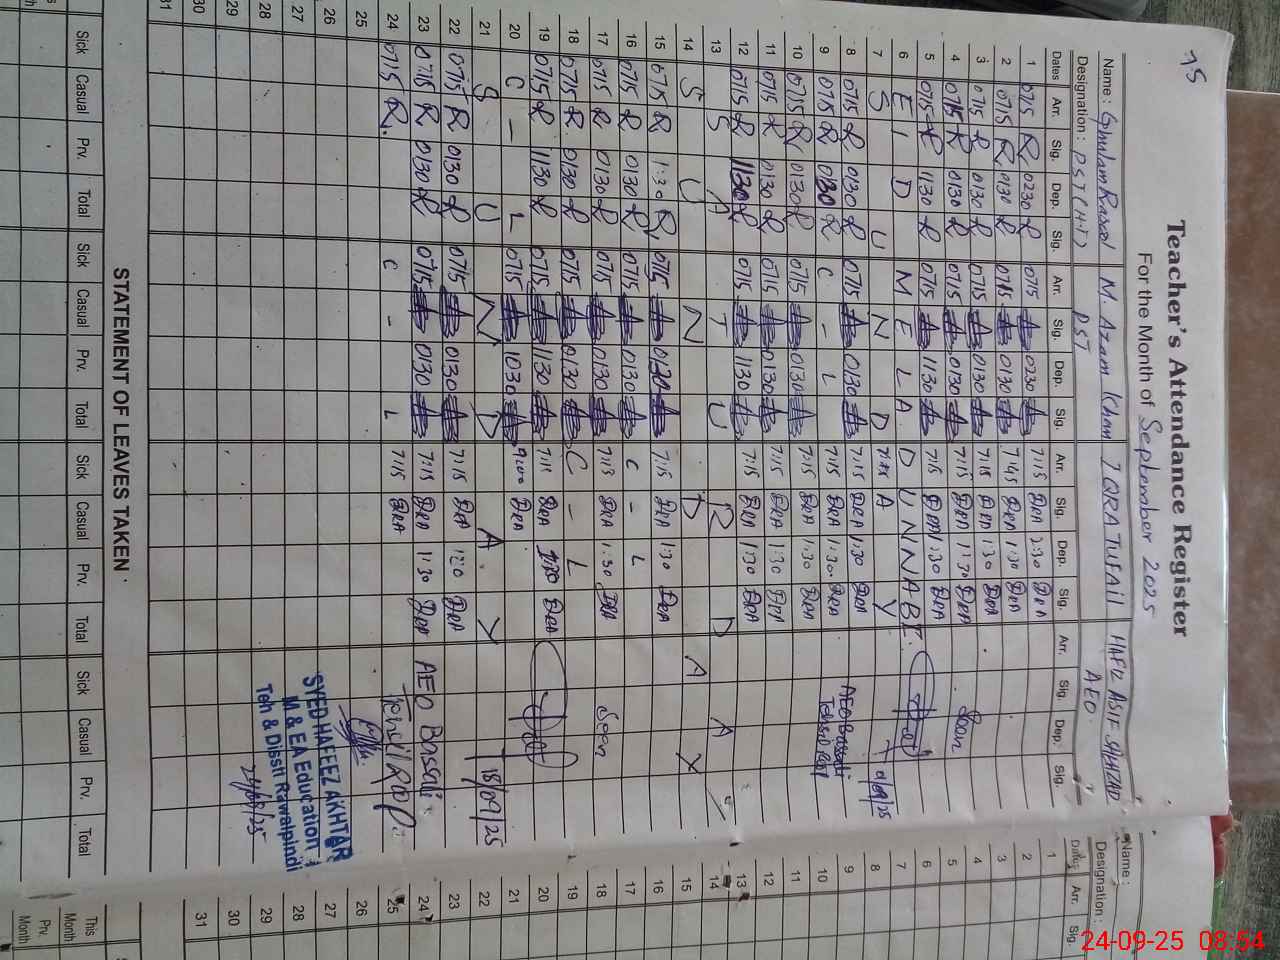 15
Teacher's Attendance Register
For the Month of September 2025
Name : Ghulam Rasool M. Azam Khan IQRA TUFAIL HAFIZ ASIF SHAHZAD
Designation : PST (H.T) PST AEO
Dates Arr. Sig. Dep. Sig. Arr. Sig. Dep. Sig. Arr. Sig. Dep. Sig. Arr. Sig. Dep. Sig.
1 0715 0230 0715 0230 7:15 2:30
2 0715 0130 0715 0130 7:45 1:30
3 0715 0130 0715 0130 7:15 1:30
4 0715 0130 0715 0130 7:15 1:30 Seen
5 0715 1130 0715 1130 7:15 1:30
6 E I D M E L A D U N N A B I
7 S U N D A Y
8 0715 0130 0715 0130 7:15 1:30
9 0715 0130 C - L 7:15 1:30 AEO Bassali
10 0715 0130 0715 0130 7:15 1:30
11 0715 0130 0715 0130 7:15 1:30
12 0715 1130 0715 1130 7:15 1:30
13 S A T U R D A Y
14 S U N D A Y
15 0715 1:30 0715 0130 7:15 1:30
16 0715 0130 0715 0130 C - L
17 0715 0130 0715 0130 7:15 1:30 Seen
18 0715 0130 0715 0130 C - L
19 0715 1130 0715 1130 7:15
20 C - L 0715 1030 9:00
21 S U N D A Y 18/09/25
22 0715 0130 0715 0130 7:15
23 0715 0130 0715 0130 7:15 1:30 AEO Bassali
24 0715 C - L 7:15 Tehsil Rwp.
25
26
27
28
29
30
31
SYED HAFEEZ AKHTAR
M & EA Education
Teh & Disstt Rawalpindi
24/09/25
STATEMENT OF LEAVES TAKEN
Sick Casual Prv. Total Sick Casual Prv. Total Sick Casual Prv. Total Sick Casual Prv. Total
Name :
Designation :
Dates Arr. Sig.
1
2
3
4
5
6
7
8
9
10
11
12
13
14
15
16
17
18
19
20
21
22
23
24
25
26
27
28
29
30
31
This Month
Prv. Month
24-09-25 08:54